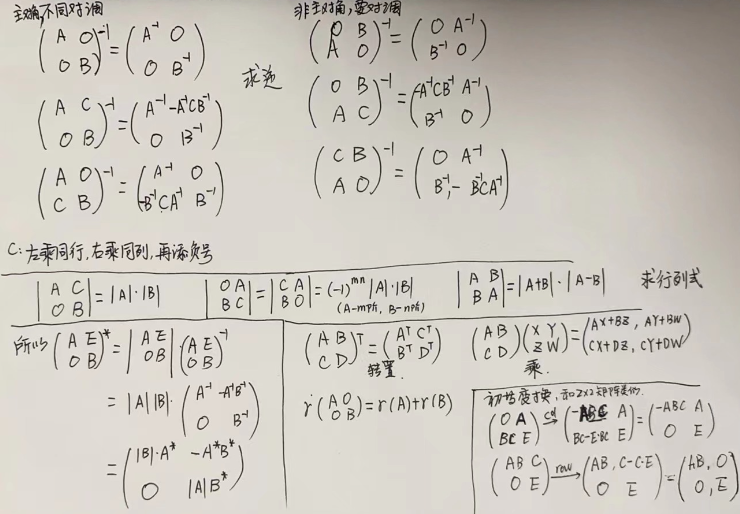 主对角,不同对调
非主对角,要对调
(A O; O B)^{-1} = (A^{-1} O; O B^{-1})
(O B; A O)^{-1} = (O A^{-1}; B^{-1} O)
求逆
(A C; O B)^{-1} = (A^{-1} -A^{-1}CB^{-1}; O B^{-1})
(O B; A C)^{-1} = (-A^{-1}CB^{-1} A^{-1}; B^{-1} O)
(A O; C B)^{-1} = (A^{-1} O; -B^{-1}CA^{-1} B^{-1})
(C B; A O)^{-1} = (O A^{-1}; B^{-1}, -B^{-1}CA^{-1})
C:左乘同行,右乘同列,再添负号
|A C; O B| = |A|·|B|
|O A; B C| = |C A; B O| = (-1)^{mn} |A|·|B|
(A-m阶, B-n阶)
|A B; B A| = |A+B|·|A-B|
求行列式
所以 (A E; O B)^* = |A E; O B| (A E; O B)^{-1}
= |A||B|·(A^{-1} -A^{-1}B^{-1}; O B^{-1})
= (|B|·A^* -A^*B^*; O |A|B^*)
(A B; C D)^T = (A^T C^T; B^T D^T)
转置.
r(A O; O B) = r(A)+r(B)
(A B; C D)(X Y; Z W) = (AX+BZ, AY+BW; CX+DZ, CY+DW)
乘.
初等变换,和2×2矩阵类似.
(O A; BC E) →col (-ABC A; BC-E·BC E) = (-ABC A; O E)
(AB C; O E) →row (AB, C-C·E; O E) = (AB, O; O, E)